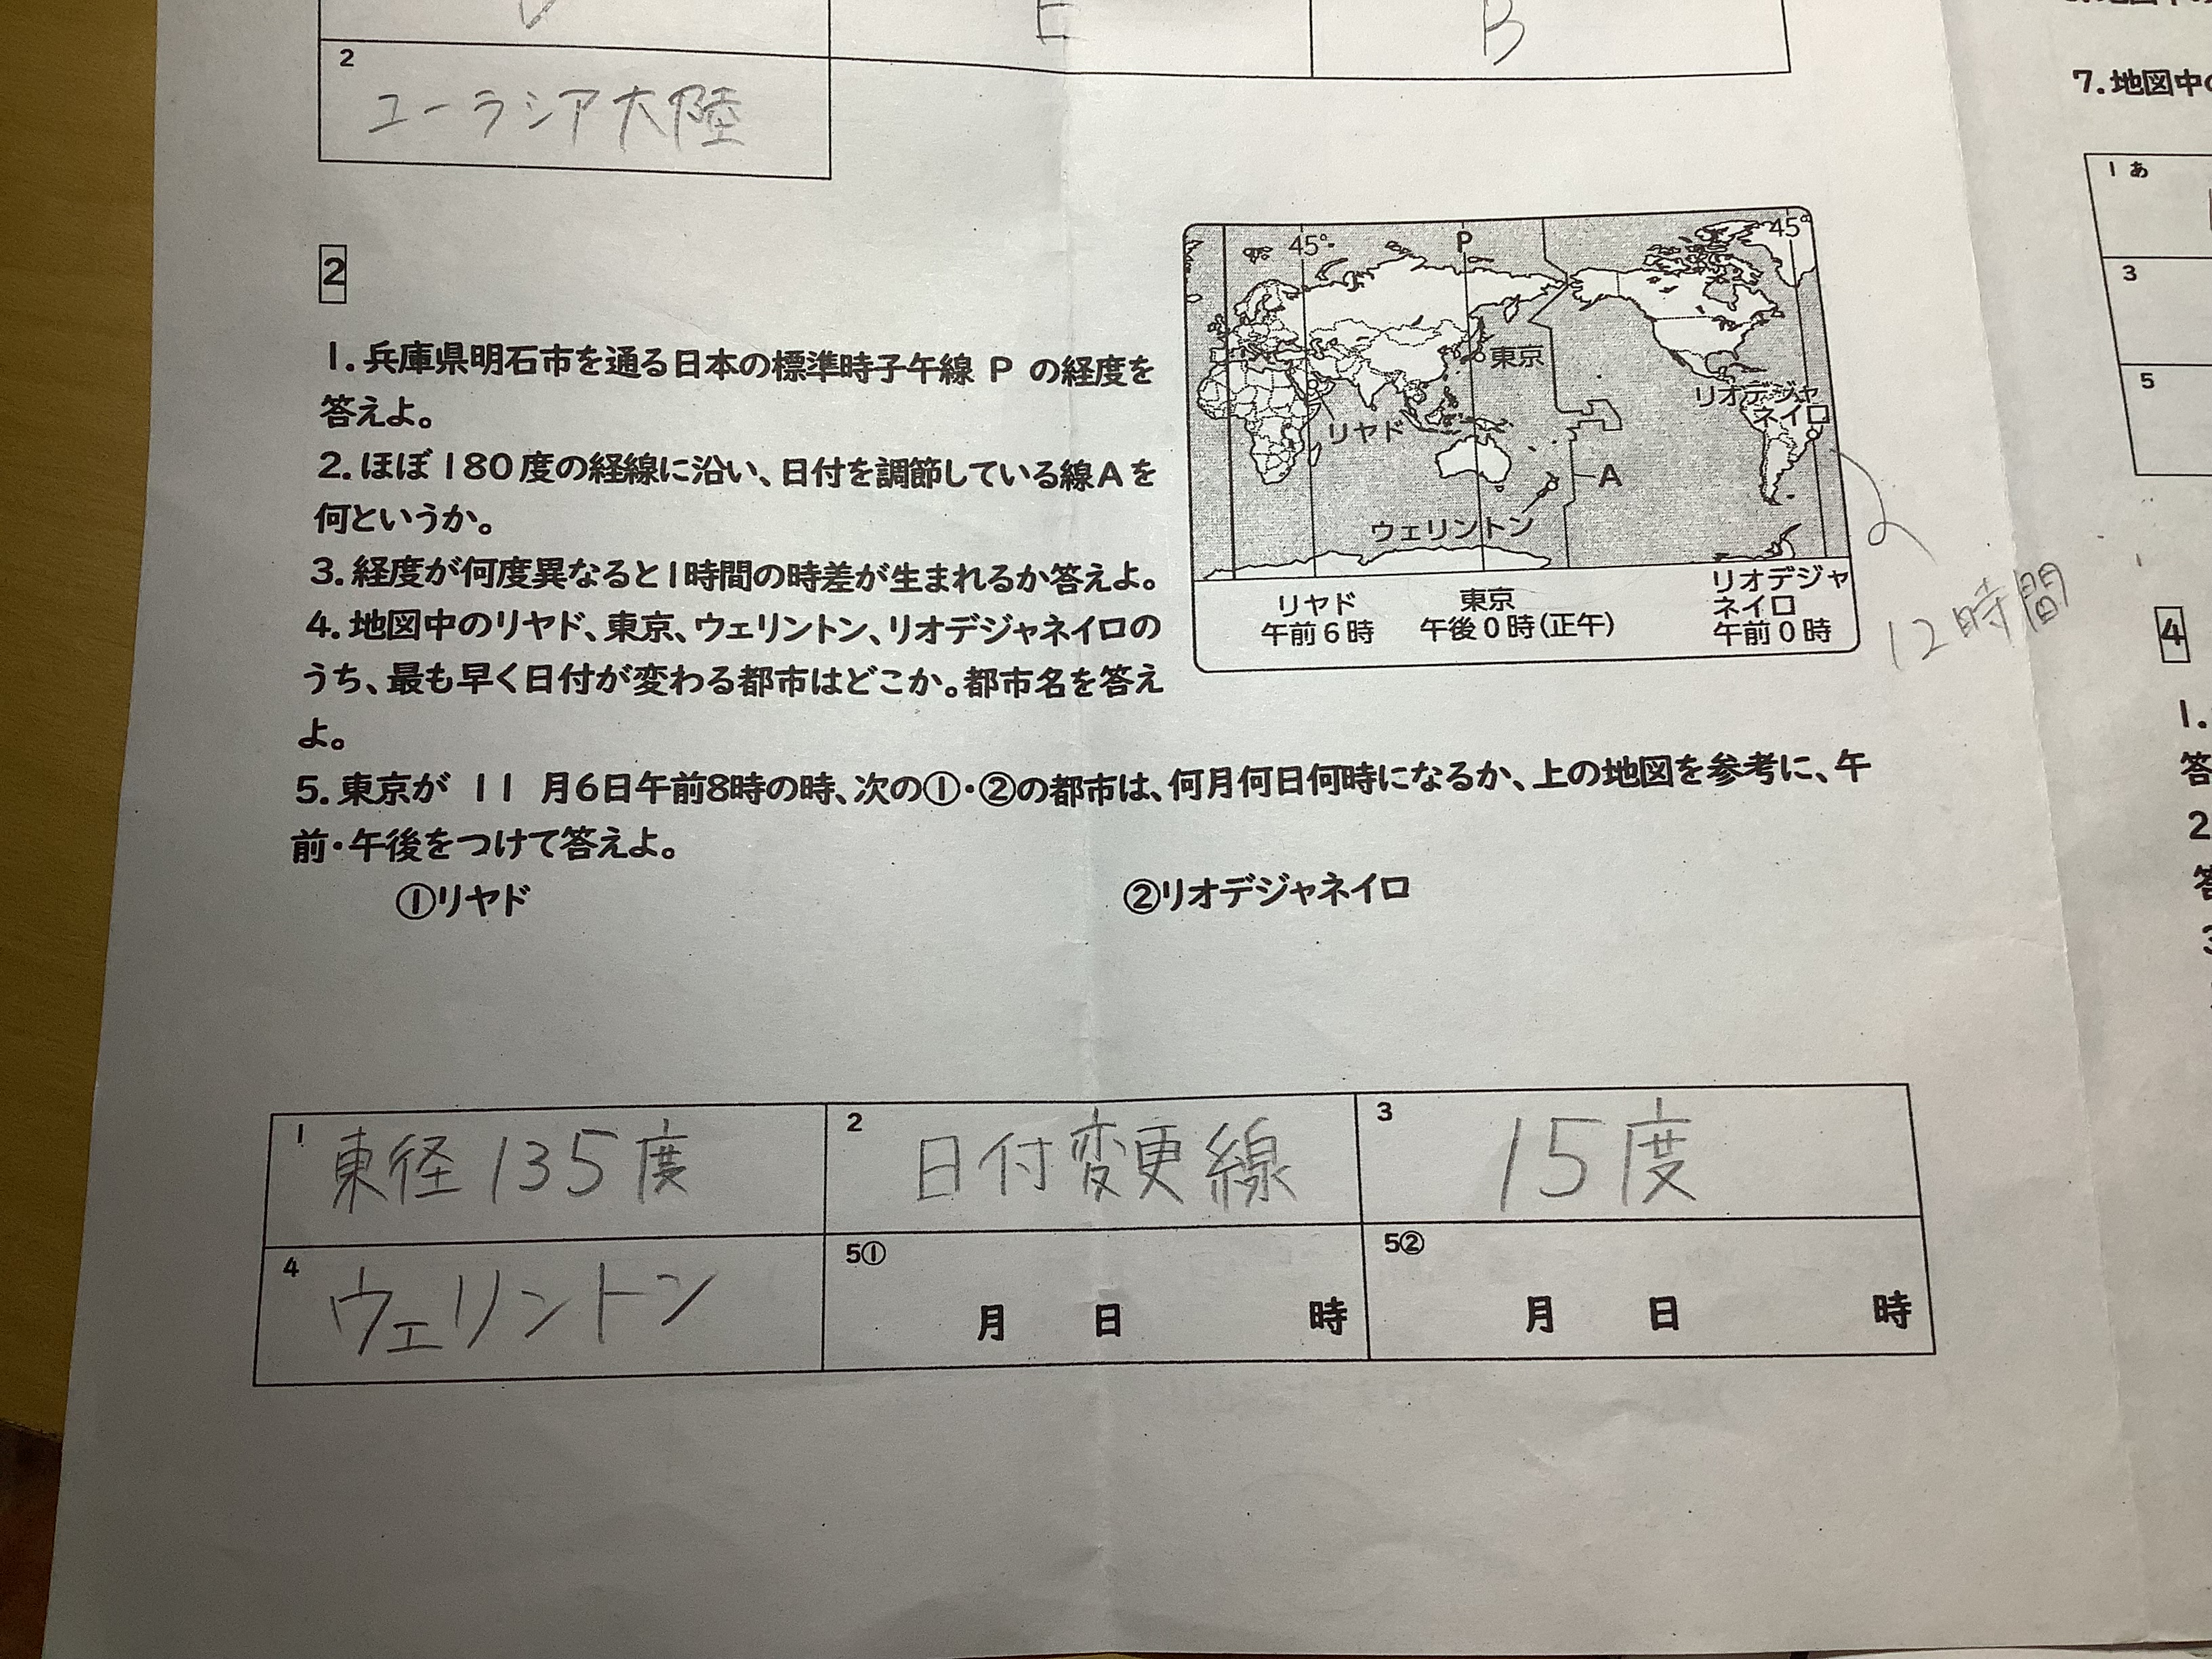 E
B
2
ユーラシア大陸
7.地図中の
1 あ
3
5
2
1.兵庫県明石市を通る日本の標準時子午線 P の経度を
答えよ。
2.ほぼ180度の経線に沿い、日付を調節している線Aを
何というか。
3.経度が何度異なると1時間の時差が生まれるか答えよ。
4.地図中のリヤド、東京、ウェリントン、リオデジャネイロの
うち、最も早く日付が変わる都市はどこか。都市名を答え
よ。
45°
P
45°
東京
リオデジャ
ネイロ
リヤド
A
ウェリントン
リヤド
午前6時
東京
午後0時(正午)
リオデジャ
ネイロ
午前0時
12時間
5.東京が 11 月6日午前8時の時、次の①・②の都市は、何月何日何時になるか、上の地図を参考に、午
前・午後をつけて答えよ。
①リヤド ②リオデジャネイロ
1 東径135度
2 日付変更線
3 15度
4 ウェリントン
5① 月 日 時
5② 月 日 時
4
1.
答
2
答
3